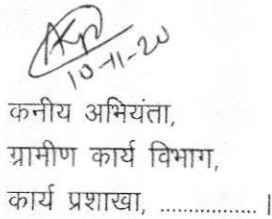 10-11-20
कनीय अभियंता,
ग्रामीण कार्य विभाग,
कार्य प्रशाखा, ................. ।